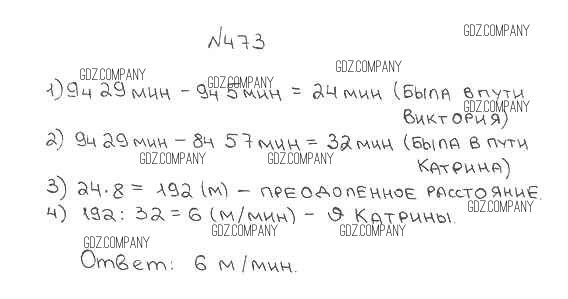 GDZ.COMPANY
№473
GDZ.COMPANY
GDZ.COMPANY GDZ.COMPANY
1) 9ч 29 мин - 9ч 5 мин = 24 мин (была в пути
GDZ.COMPANY
Виктория)
2) 9ч 29 мин - 8ч 57 мин = 32 мин (была в пути
GDZ.COMPANY GDZ.COMPANY
Катрина)
3) 24·8 = 192 (м) - преодоленное расстояние.
4) 192 : 32 = 6 (м/мин) - υ Катрины.
GDZ.COMPANY
GDZ.COMPANY GDZ.COMPANY GDZ.COMPANY
Ответ: 6 м/мин.